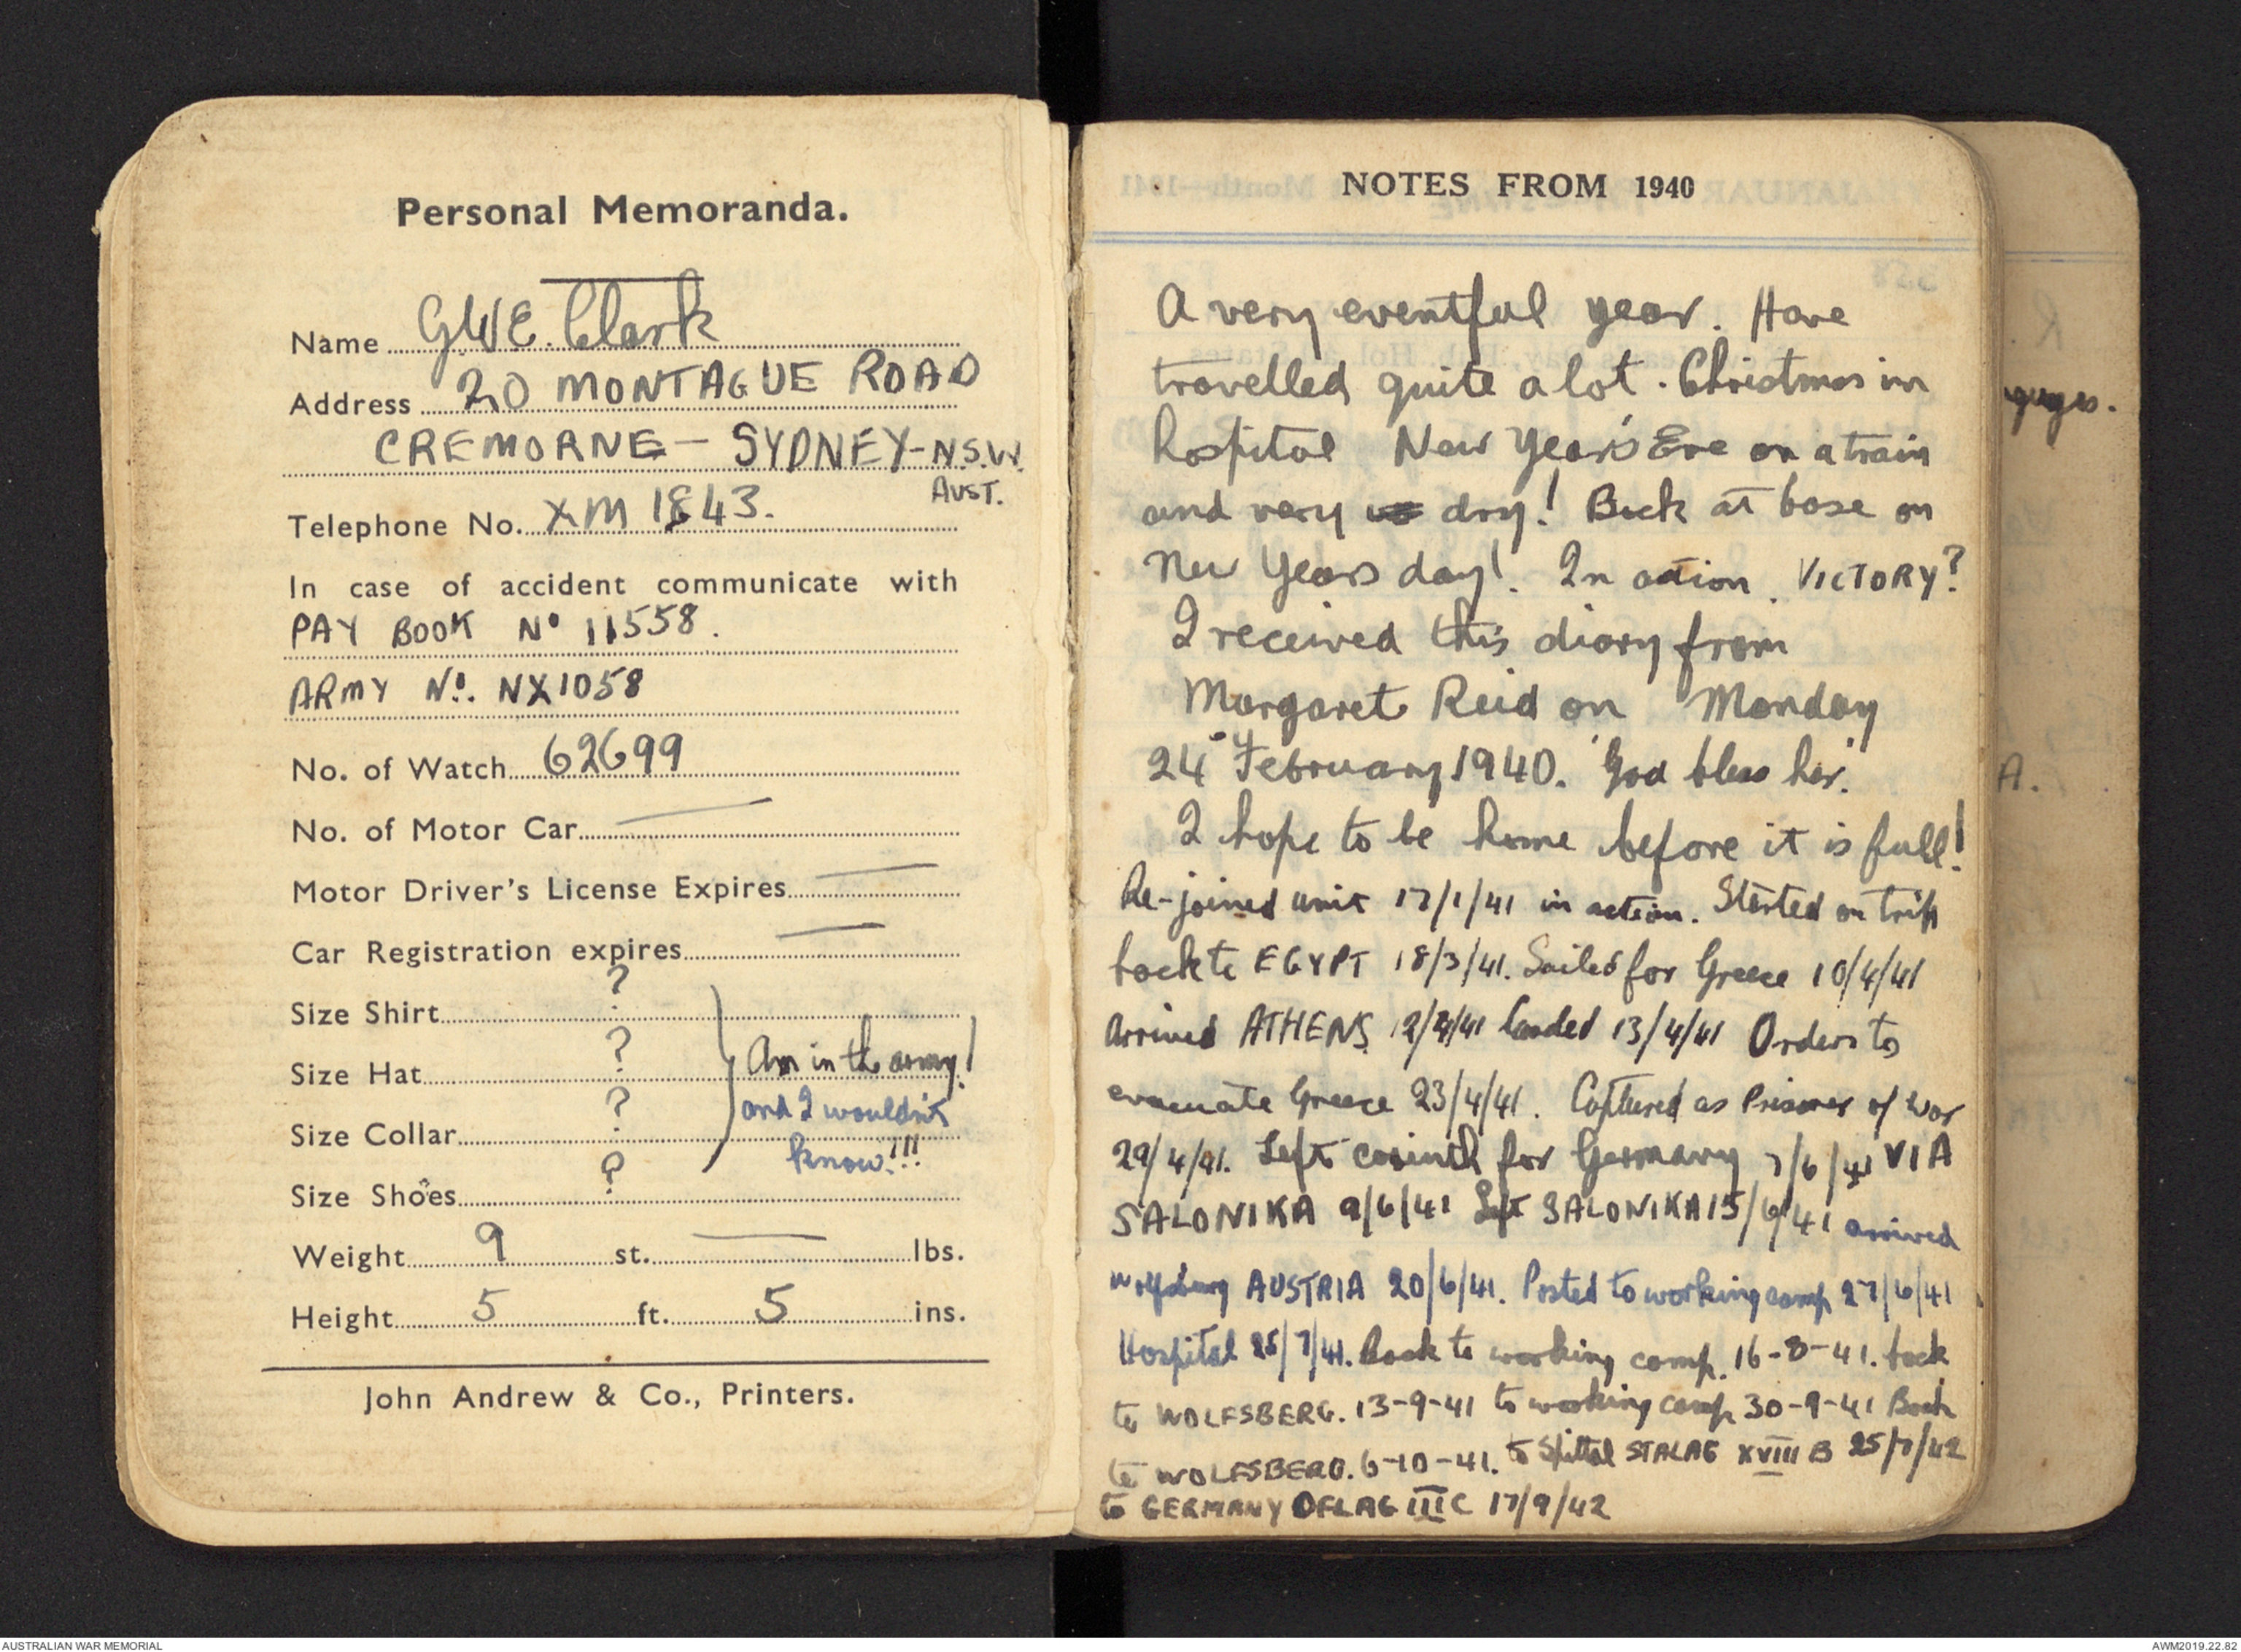 Personal Memoranda.
Name GWE. Clark
Address 20 MONTAGUE ROAD
CREMORNE - SYDNEY - N.S.W.
AUST.
Telephone No. XM 1843.
In case of accident communicate with
PAY BOOK No 11558.
ARMY No. NX1058
No. of Watch 62699
No. of Motor Car —
Motor Driver's License Expires —
Car Registration expires —
Size Shirt ?
Size Hat ? Am in the army!
Size Collar ? and I wouldn't
know!!!
Size Shoes ?
Weight 9 st. — lbs.
Height 5 ft. 5 ins.
John Andrew & Co., Printers.
NOTES FROM 1940
A very eventful year. Have
travelled quite a lot. Christmas in
hospital New Year's Eve on a train
and very dry! Back at base on
New Years day! In action. VICTORY?
I received this diary from
Margaret Reid on Monday
24 February 1940. 'God bless her.'
I hope to be home before it is full!
Re-joined unit 17/1/41 in action. Started on trip
back to EGYPT 18/3/41. Sailed for Greece 10/4/41
Arrived ATHENS 12/4/41 landed 13/4/41 Orders to
evacuate Greece 23/4/41. Captured as Prisoner of War
29/4/41. Left corinth for Germany 7/6/41 VIA
SALONIKA 9/6/41 Left SALONIKA 15/6/41 arrived
Wolfsburg AUSTRIA 20/6/41. Posted to working camp 27/6/41
Hospital 25/7/41. Back to working camp. 16-8-41. back
to WOLFSBERG. 13-9-41 to working camp 30-9-41 Back
to WOLFSBERG. 6-10-41. to Spittal STALAG XVIII B 25/7/42
to GERMANY OFLAG III C 17/9/42
guages.
A.
AUSTRALIAN WAR MEMORIAL
AWM2019.22.82